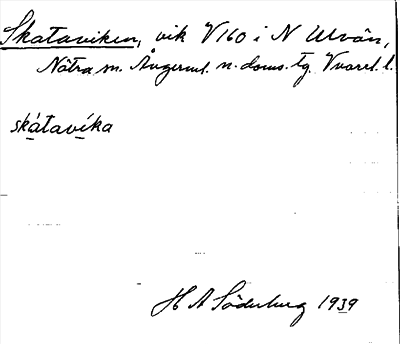 Skataviken, vik V160 i N Ulvön,
Nätra sn. Ångerml. n. doms. tg. Vnorrl. l.
skátavíka
H A Söderberg 1939